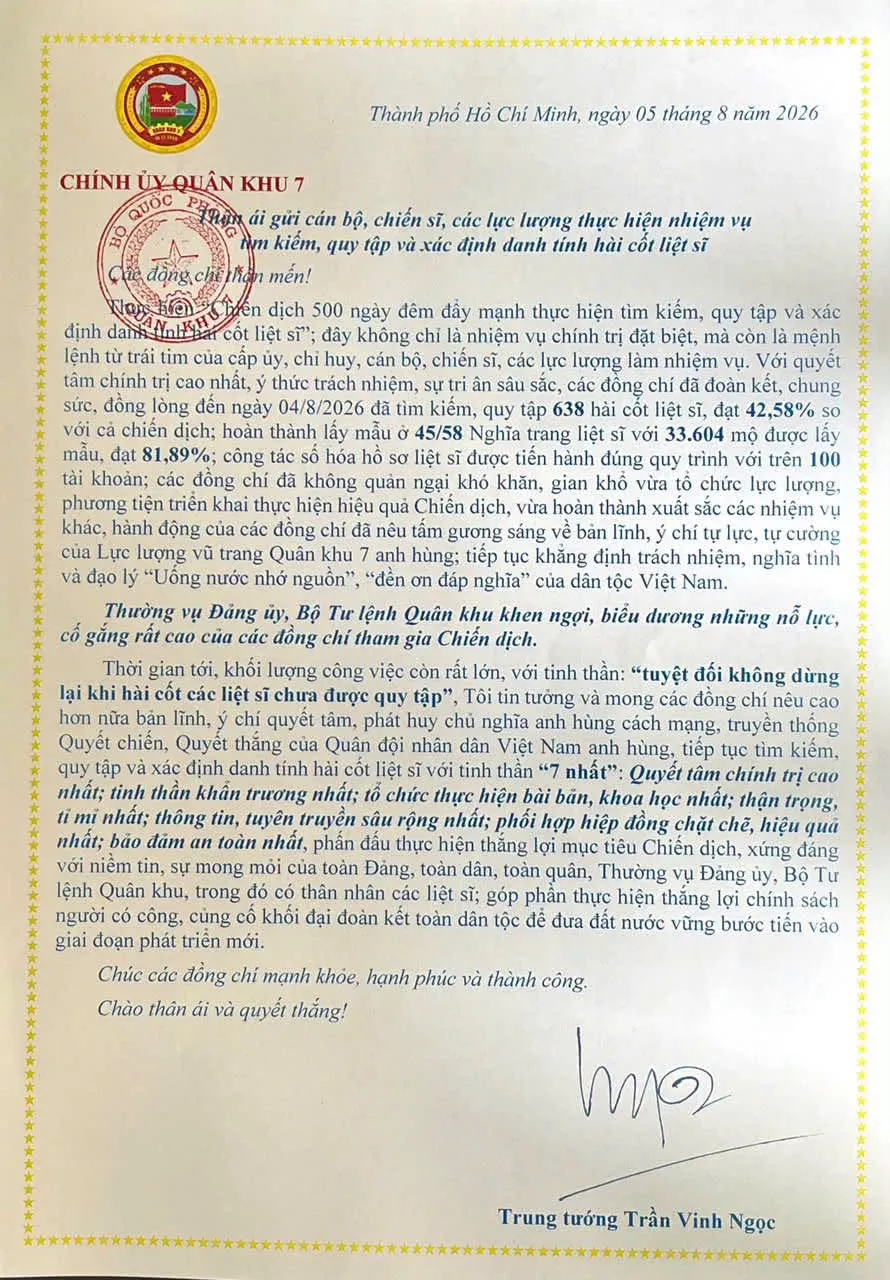 Thành phố Hồ Chí Minh, ngày 05 tháng 8 năm 2026
CHÍNH ỦY QUÂN KHU 7
BỘ QUỐC PHÒNG
QUÂN KHU 7
Thân ái gửi cán bộ, chiến sĩ, các lực lượng thực hiện nhiệm vụ
tìm kiếm, quy tập và xác định danh tính hài cốt liệt sĩ
Các đồng chí thân mến!
Thực hiện “Chiến dịch 500 ngày đêm đẩy mạnh thực hiện tìm kiếm, quy tập và xác
định danh tính hài cốt liệt sĩ”; đây không chỉ là nhiệm vụ chính trị đặt biệt, mà còn là mệnh
lệnh từ trái tim của cấp ủy, chỉ huy, cán bộ, chiến sĩ, các lực lượng làm nhiệm vụ. Với quyết
tâm chính trị cao nhất, ý thức trách nhiệm, sự tri ân sâu sắc, các đồng chí đã đoàn kết, chung
sức, đồng lòng đến ngày 04/8/2026 đã tìm kiếm, quy tập 638 hài cốt liệt sĩ, đạt 42,58% so
với cả chiến dịch; hoàn thành lấy mẫu ở 45/58 Nghĩa trang liệt sĩ với 33.604 mộ được lấy
mẫu, đạt 81,89%; công tác số hóa hồ sơ liệt sĩ được tiến hành đúng quy trình với trên 100
tài khoản; các đồng chí đã không quản ngại khó khăn, gian khổ vừa tổ chức lực lượng,
phương tiện triển khai thực hiện hiệu quả Chiến dịch, vừa hoàn thành xuất sắc các nhiệm vụ
khác, hành động của các đồng chí đã nêu tấm gương sáng về bản lĩnh, ý chí tự lực, tự cường
của Lực lượng vũ trang Quân khu 7 anh hùng; tiếp tục khẳng định trách nhiệm, nghĩa tình
và đạo lý “Uống nước nhớ nguồn”, “đền ơn đáp nghĩa” của dân tộc Việt Nam.
Thường vụ Đảng ủy, Bộ Tư lệnh Quân khu khen ngợi, biểu dương những nỗ lực,
cố gắng rất cao của các đồng chí tham gia Chiến dịch.
Thời gian tới, khối lượng công việc còn rất lớn, với tinh thần: “tuyệt đối không dừng
lại khi hài cốt các liệt sĩ chưa được quy tập”, Tôi tin tưởng và mong các đồng chí nêu cao
hơn nữa bản lĩnh, ý chí quyết tâm, phát huy chủ nghĩa anh hùng cách mạng, truyền thống
Quyết chiến, Quyết thắng của Quân đội nhân dân Việt Nam anh hùng, tiếp tục tìm kiếm,
quy tập và xác định danh tính hài cốt liệt sĩ với tinh thần “7 nhất”: Quyết tâm chính trị cao
nhất; tinh thần khẩn trương nhất; tổ chức thực hiện bài bản, khoa học nhất; thận trọng,
tỉ mỉ nhất; thông tin, tuyên truyền sâu rộng nhất; phối hợp hiệp đồng chặt chẽ, hiệu quả
nhất; bảo đảm an toàn nhất, phấn đấu thực hiện thắng lợi mục tiêu Chiến dịch, xứng đáng
với niềm tin, sự mong mỏi của toàn Đảng, toàn dân, toàn quân, Thường vụ Đảng ủy, Bộ Tư
lệnh Quân khu, trong đó có thân nhân các liệt sĩ; góp phần thực hiện thắng lợi chính sách
người có công, củng cố khối đại đoàn kết toàn dân tộc để đưa đất nước vững bước tiến vào
giai đoạn phát triển mới.
Chúc các đồng chí mạnh khỏe, hạnh phúc và thành công.
Chào thân ái và quyết thắng!
Trung tướng Trần Vinh Ngọc